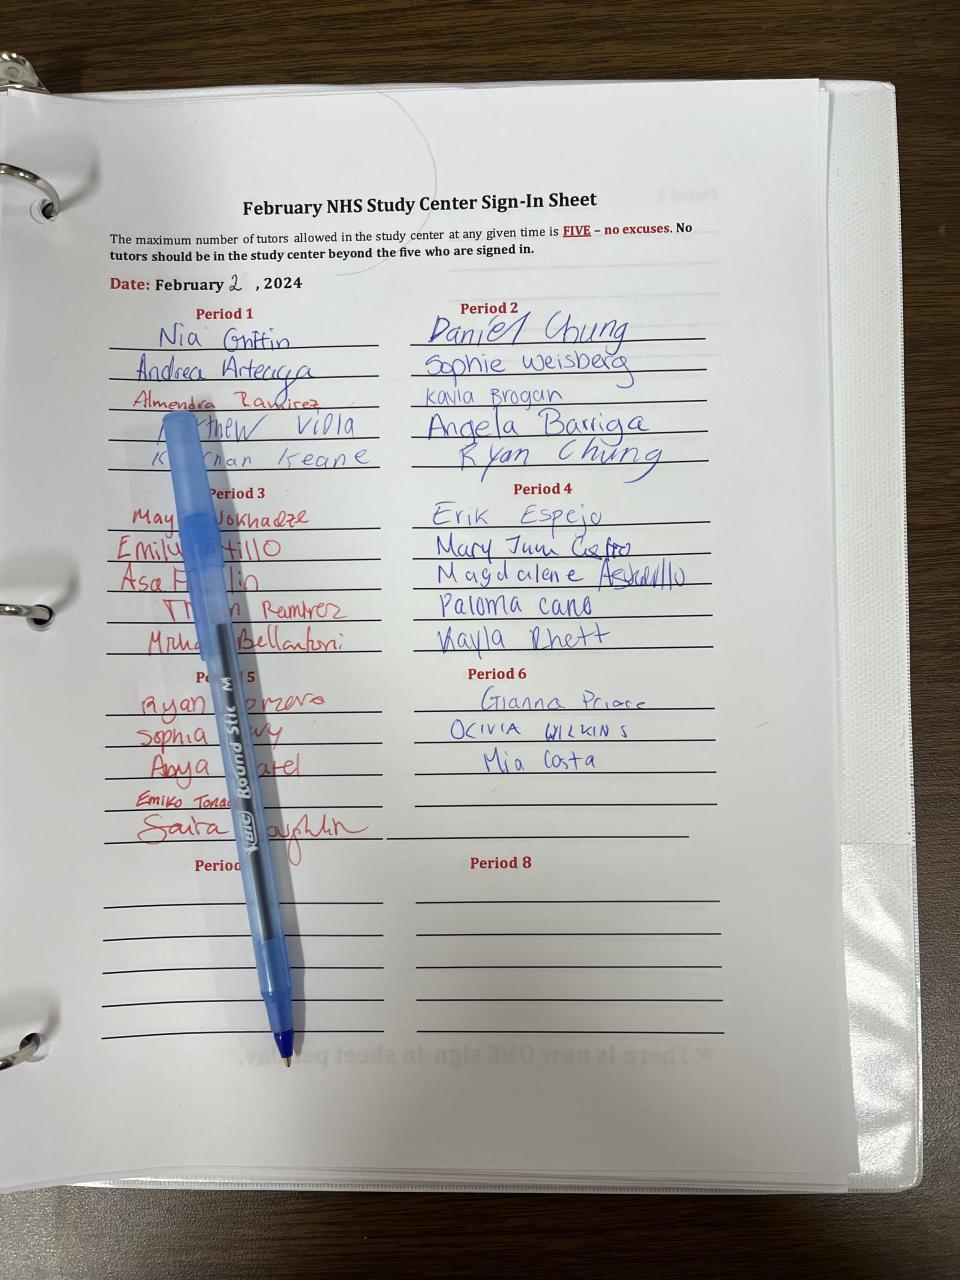 February NHS Study Center Sign-In Sheet
The maximum number of tutors allowed in the study center at any given time is FIVE – no excuses. No
tutors should be in the study center beyond the five who are signed in.
Date: February 2 , 2024
Period 1
Nia Griffin
Andrea Arteaga
Almendra Ramirez
Viola
Keane
Period 2
Daniel Chung
Sophie Weisberg
Kayla Brogan
Angela Barriga
Ryan Chung
Period 3
May
Emily
Asa
Ramirez
Bellantoni
Period 4
Erik Espejo
Mary Jum Castro
Magdalene
Paloma cano
Kayla Rhett
5
Ryan
Sophia
Emiko
Saira
Period 6
Gianna
OLIVIA WILKINS
Mia Costa
Period
Period 8
BIC Round Stic M
★There is now ONE sign-in sheet per day.